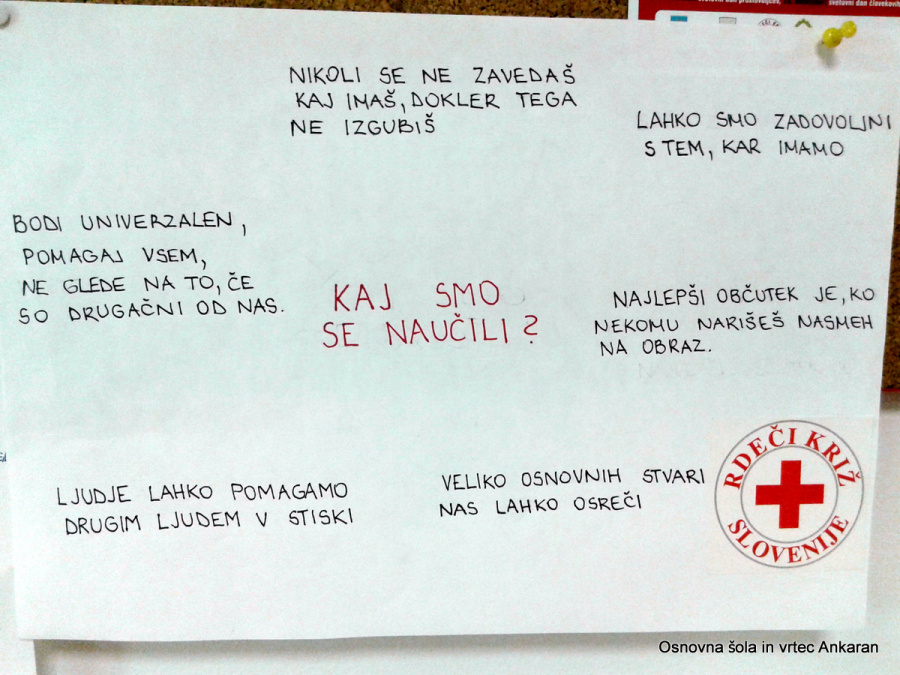 svetovni dan človekovih
NIKOLI SE NE ZAVEDAŠ
KAJ IMAŠ, DOKLER TEGA
NE IZGUBIŠ
LAHKO SMO ZADOVOLJNI
S TEM, KAR IMAMO
BODI UNIVERZALEN,
POMAGAJ VSEM,
NE GLEDE NA TO, ČE
SO DRUGAČNI OD NAS.
KAJ SMO
SE NAUČILI?
NAJLEPŠI OBČUTEK JE, KO
NEKOMU NARIŠEŠ NASMEH
NA OBRAZ.
LJUDJE LAHKO POMAGAMO
DRUGIM LJUDEM V STISKI
VELIKO OSNOVNIH STVARI
NAS LAHKO OSREČI
RDEČI KRIŽ
SLOVENIJE
Osnovna šola in vrtec Ankaran